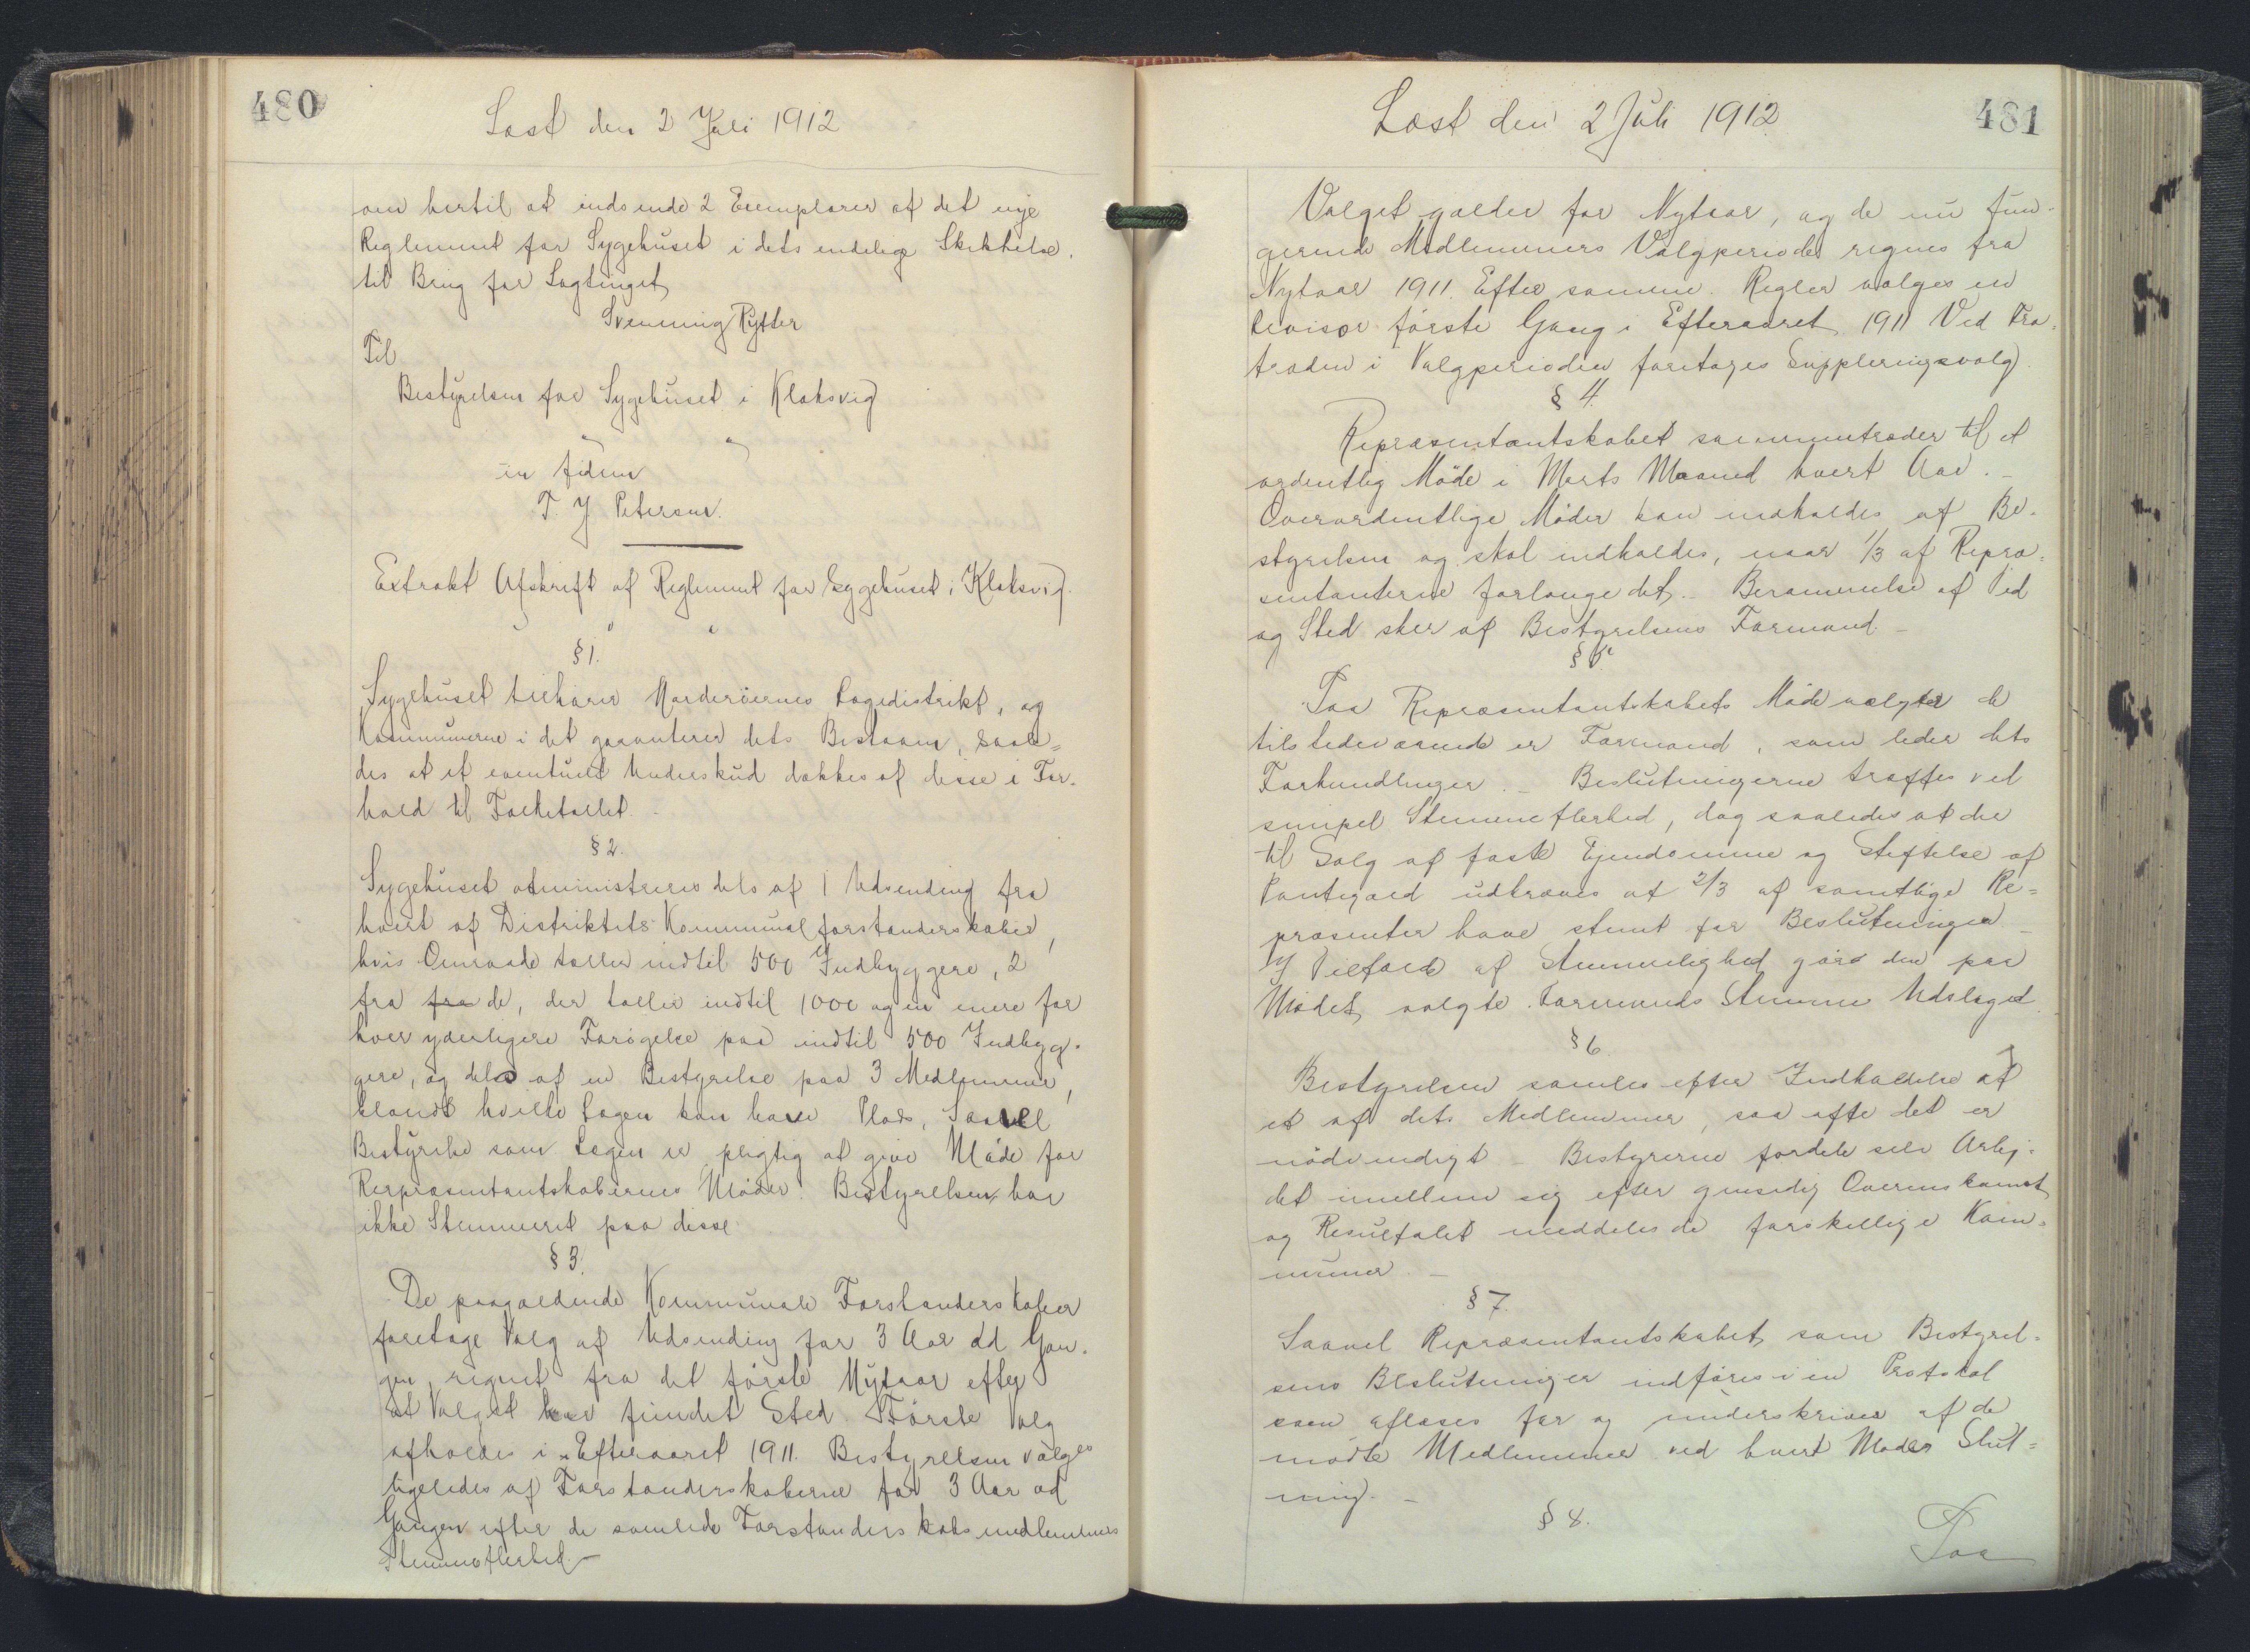 480
Læst den 2 Juli 1912
om hertil at indsende 2 Exemplarer af det nye
Reglement for Sygehuset i dets endelige Skikkelse.
til Brug for Lagtinget
Svenning Rytter
Til
Bestyrelsen for Sygehuset i Klaksvig
in fidem
T. J Petersen.
Extrakt Afskrift af Reglement for Sygehuset i Klaksvig.
§ 1.
Sygehuset tilhører Norderöernes Lægedistrikt, og
Kommunerne i det garanterer dets Bestaaen, saale=
des at et eventuelt Underskud dækkes af disse i For-
hold til Folketallet.
§ 2.
Sygehuset administreres dels af 1 Udsending fra
hvert af Distriktets Kommunalforstanderskaber,
hvis Omraade tæller indtil 500 Indbyggere, 2
fra fra de, der tæller indtil 1000 og en mere for
hver yderligere Forögelse paa indtil 500 Indbyg-
gere, og dels af en Bestyrelse paa 3 Medlemmer,
blandt hvilke Lægen kan have Plads, Saavel
Bestyrelse som Lægen er pligtig at give Möde for
Rerpræsentantskabernes Möder. Bestyrelsen har
ikke Stemmeret paa disse.
§ 3.
De paagældende Kommunale Forstanderskaber
foretage Valg af Udsending for 3 Aar ad Gan-
gen, regnet fra det förste Nytaar efter
at Valget har fundet Sted. Förste Valg
afholdes i Efteraaret 1911. Bestyrelsen vælges
ligeledes af Forstanderskaberne for 3 Aar ad
Gangen efter de samlede Forstanderskabsmedlemmers
Stemmeflerhed. –
481
Læst den 2 Juli 1912
Valget gælder for Nytaar, og de nu fun-
gerende Medlemmers Valgperiode regnes fra
Nytaar 1911. Efter samme Regler vælges en
Revisor förste Gang i Efteraaret 1911 Ved Fra-
træden i Valgperioden foretages Suppleringsvalg.
§ 4.
Repræsentantskabet sammentræder til et
ordentlig Möde i Marts Maaned hvert Aar. –
Overordentlige Möder kan indkaldes af Be-
styrelsen og skal indkaldes, naar 1/3 af Repræ-
sentanterne forlange det. – Berammelse af Tid
og Sted sker af Bestyrelsens Formand –
§ 5.
Paa Repræsentantskabets Möde vælger de
tilstedeværende er Formand, som leder dets
Forhandlinger. – Beslutningerne træffes ved
simpel Stemmeflerhed, dog saaledes at der
til Salg af faste Ejendomme og Stiftelse af
Pantegæld udkræves at 2/3 af samtlige Re=
præsenter have stemt for Beslutningen –
I Tilfælde af Stemmelighed görs den paa
Mödet valgte Formands Stemme Udslaget
§ 6
Bestyrelsen samles efter Indkaldelse af
et af dets Medlemmer, saa ofte det er
nödvendigt – Bestyrerne fordele selv Arbej-
det imellem sig efter gensidig Overenskomst
og Resultatet meddeles de forskellige Kom-
muner. –
§ 7.
Saavel Repræsentantskabet som Bestyrel-
sens Beslutninger indföres i en Protokol
som aflæses for og underskrives af de
mödte Medlemmer ved hvert Mödes Slut=
ning. –
§ 8.
Paa